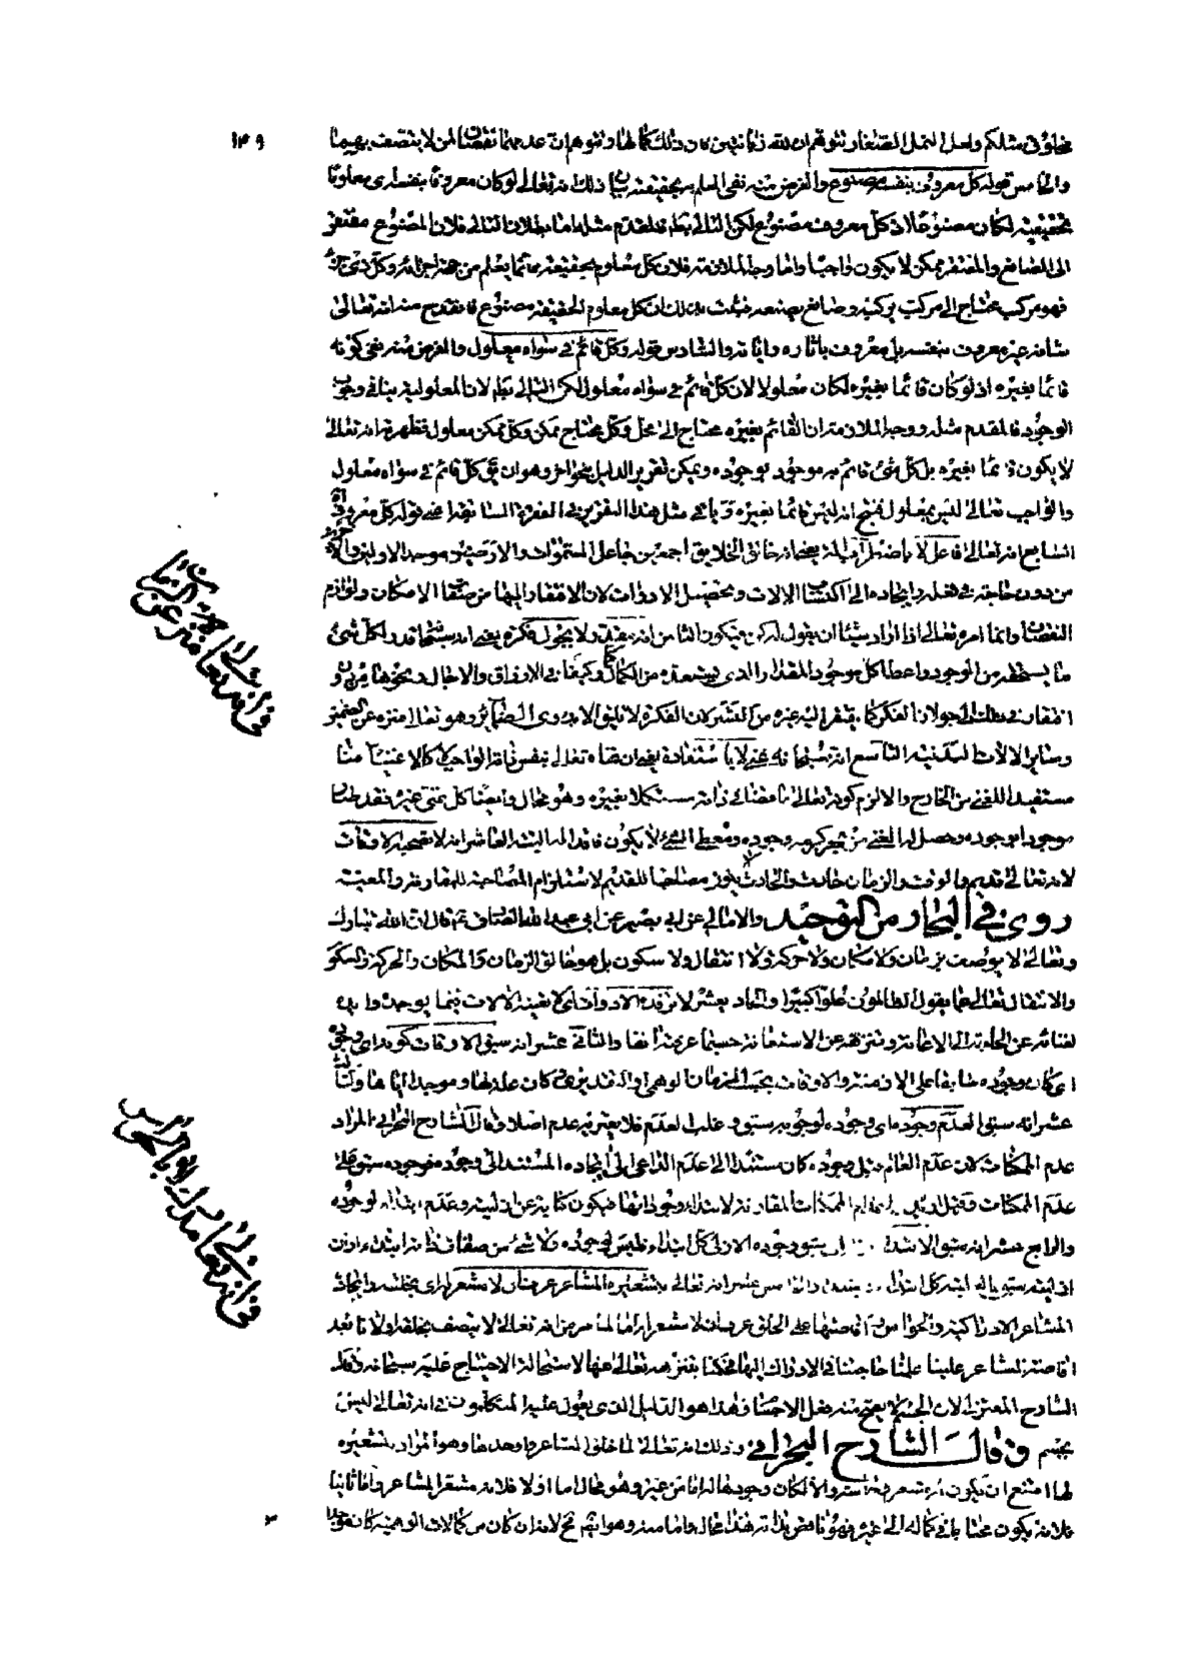 ١٤٩
مخلوق مثلكم ولعل النمل الصغار تتوهم ان لله زبانيتين فان ذلك كمالها وتتوهم ان عدمهما نقصان لمن لا يتصف بهما
والخامس قوله كل معروف بنفسه مصنوع والغرض منه نفى العلم بحقيقته بيان ذلك انه تعالى لو كان معروفا بنفسه اى معلوما
بحقيقته لكان مصنوعا لان كل معروف مصنوع لكن التالى باطل فالمقدم مثله اما بطلان التالى فلان المصنوع مفتقر
الى الصانع والمفتقر ممكن لا يكون واجبا واما وجه الملازمة فلان كل معلوم بحقيقته فانما يعلم من جهة اجزائه وكل ذى جزء
فهو مركب محتاج الى مركب يركبه وصانع يصنعه فثبت بذلك ان كل معلوم الحقيقة مصنوع فانقدح منه انه تعالى
شانه غير معروف بنفسه بل معروف باثاره واياته والسادس قوله وكل قائم فى سواه معلول والغرض منه نفى كونه
قائما بغيره اذ لو كان قائما بغيره لكان معلولا لان كل قائم فى سواه معلول لكن التالى باطل لان المعلولية ينافى وجوب
الوجود فالمقدم مثله ووجه الملازمة ان القائم بغيره محتاج الى محل وكل محتاج ممكن وكل ممكن معلول فظهر انه تعالى
لا يكون قائما بغيره بل كل شئ قائم به موجود بوجوده ويمكن تقرير الدليل بنحو اخر وهو ان كل قائم فى سواه معلول
والواجب تعالى ليس بمعلول فينتج انه ليس قائما بغيره وياتى مثل هذا التقرير فى الفقرة السابقة اعنى قوله كل معروف اه
السابع انه تعالى فاعل لا باضطراب الة يعنى انه خالق الخلايق اجمعين جاعل السموات والارضين موجد الاولين والاخرين
من دون حاجة فى فعله وايجاده الى اكتساب الالات وتحصيل الادوات لان الافتقار اليها من صفات الامكان ولوازم
النقصان وانما امره تعالى اذا اراد شيئا ان يقول له كن فيكون الثامن انه مقدر لا بجول فكرة يعنى انه سبحانه قدر لكل شئ
ما يستحقه من الوجود واعطا كل موجود المقدار الذى يستعده من الكمال كما وكيفا فى الارزاق والاجال ونحوها من دون
افتقار فى ذلك الى جولان الفكر كما يفتقر اليه غيره من البشر لان الفكرة لا تليق الا بذوى الضمائر وهو تعالى منزه عن الضمير
وساير الالات البدنية التاسع انه سبحانه غنى لا باستفادة يعنى ان غناه تعالى بنفس ذاته الواجب لا كالاغنياء منا
مستفيدا للغنى من الخارج والا لزم كونه تعالى ناقصا فى ذاته مستكملا بغيره وهو محال وايضا كل غنى غيره فقد صار
موجودا بوجوده وحصل له الغنى من بحر كرمه وجوده ومعطى الشئ لا يكون فاقدا له البتة العاشر انه لا تصحبه الاوقات
لانه تعالى قديم والوقت والزمان حادث والحادث لا يكون مصاحبا للقديم لاستلزام المصاحبة للمقارنة والمعية
روى فى البحار من التوحيد والامالى عن ابى بصير عن ابى عبدالله الصادق ع قال ان الله تبارك
وتعالى لا يوصف بزمان ولا مكان ولا حركة ولا انتقال ولا سكون بل هو خالق الزمان والمكان والحركة والسكون
والانتقال تعالى عما يقول الظالمون علوا كبيرا والحادى عشر لا ترفده الادوات اى لا تعينه الالات فيما يوجده وابده
لغنائه عن الحاجة الى الاعانة وتنزهه عن الاستعانة حسبما عرفته انفا والثانى عشر انه سبق الاوقات كونه اى وجوده
اى كان وجوده سابقا على الازمنة والاوقات بحسب الزمان الوهمى او التقديرى وكان علة لها وموجدا اياها والثالث
عشر انه سبق العدم وجوده اى وجوده لوجوبه سبق وغلب العدم فلا يعتريه عدم اصلا وقال الشارح البحرانى المراد
عدم الممكنات لان عدم العالم قبل وجوده كان مستندا الى عدم الداعى الى ايجاده المستند الى وجوده فوجوده سبق على
عدم الممكنات وقيل اريد به اعدام الممكنات المقارنة لابتداء وجوداتها فيكون كناية عن ازليته وعدم ابتداء لوجوده
والرابع عشر انه سبق الابتداء ازله اى سبق وجوده الازلى كل ابتداء فليس لوجوده ولا شئ من صفاته الذاتية ابتداء
والخامس عشر انه تعالى بتشعيره المشاعر عرف ان لا مشعر له اى بخلقه وايجاده
المشاعر الادراكية والحواس وافاضتها على الخلق عرف ان لا مشعر له اما لما مر من انه تعالى لا يتصف بخلقه ولانا بعد
افاضته المشاعر علينا علمنا حاجتنا فى الادراك اليها فحكمنا بتنزهه تعالى عنها لاستحالة الاحتياج عليه سبحانه وقال
الشارح المعتزلى لان الجسم لا يصح منه فعل الاجسام وهذا هو الدليل الذى يعول عليه المتكلمون فى انه تعالى ليس
بجسم وقال الشارح البحرانى وذلك انه تعالى لما خلق المشاعر واوجدها وهو المراد بتشعيره
لها امتنع ان يكون له مشعر وحاسة والا لكان وجودها له اما من غيره وهو محال اما اولا فلانه مشعر المشاعر واما ثانيا
فلانه يكون محتاجا فى كماله الى غيره فهو ناقص بذاته هذا محال واما منه وهو ايضا مح لانها ان كان من كمالات الوهيته كان موجدا
فى انه تعالى منزه عن
فى انه تعالى مدرك لا بالحواس